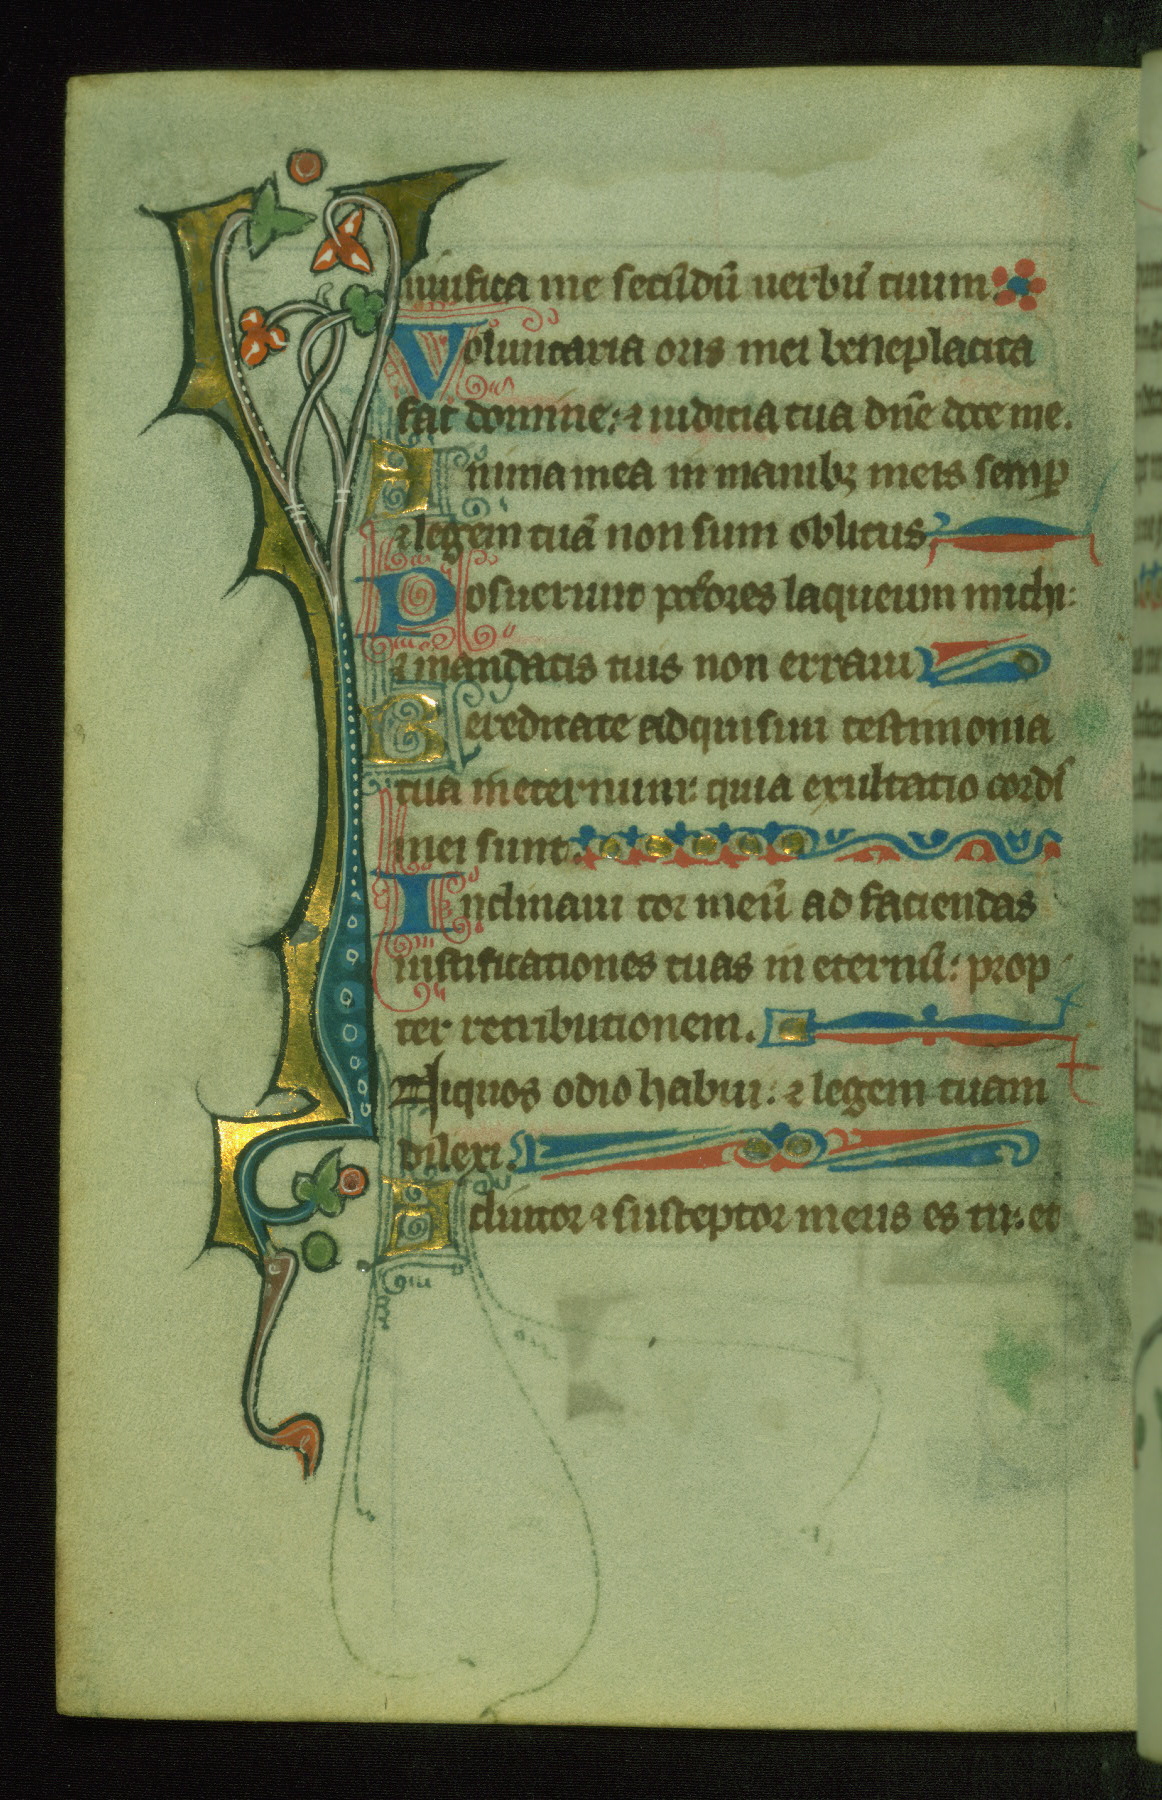 uiuifica me secūdū uerbū tuum.
Voluntaria oris mei beneplacita
fac domine: ⁊ iudicia tua dn̄e doce me.
Anima mea in manibꝫ meis semꝑ
⁊ legem tuā non sum oblitus
Posuerunt pctores laqueum michi:
⁊ mandatis tuis non erraui
Hereditate adquisiui testimonia
tua in eternum: quia exultatio cordis
mei sunt.
Inclinaui cor meū ad faciendas
iustificationes tuas in eternū: prop
ter retributionem.
Iniquos odio habui: ⁊ legem tuam
dilexi.
Adiutor ⁊ susceptor meus es tu: et